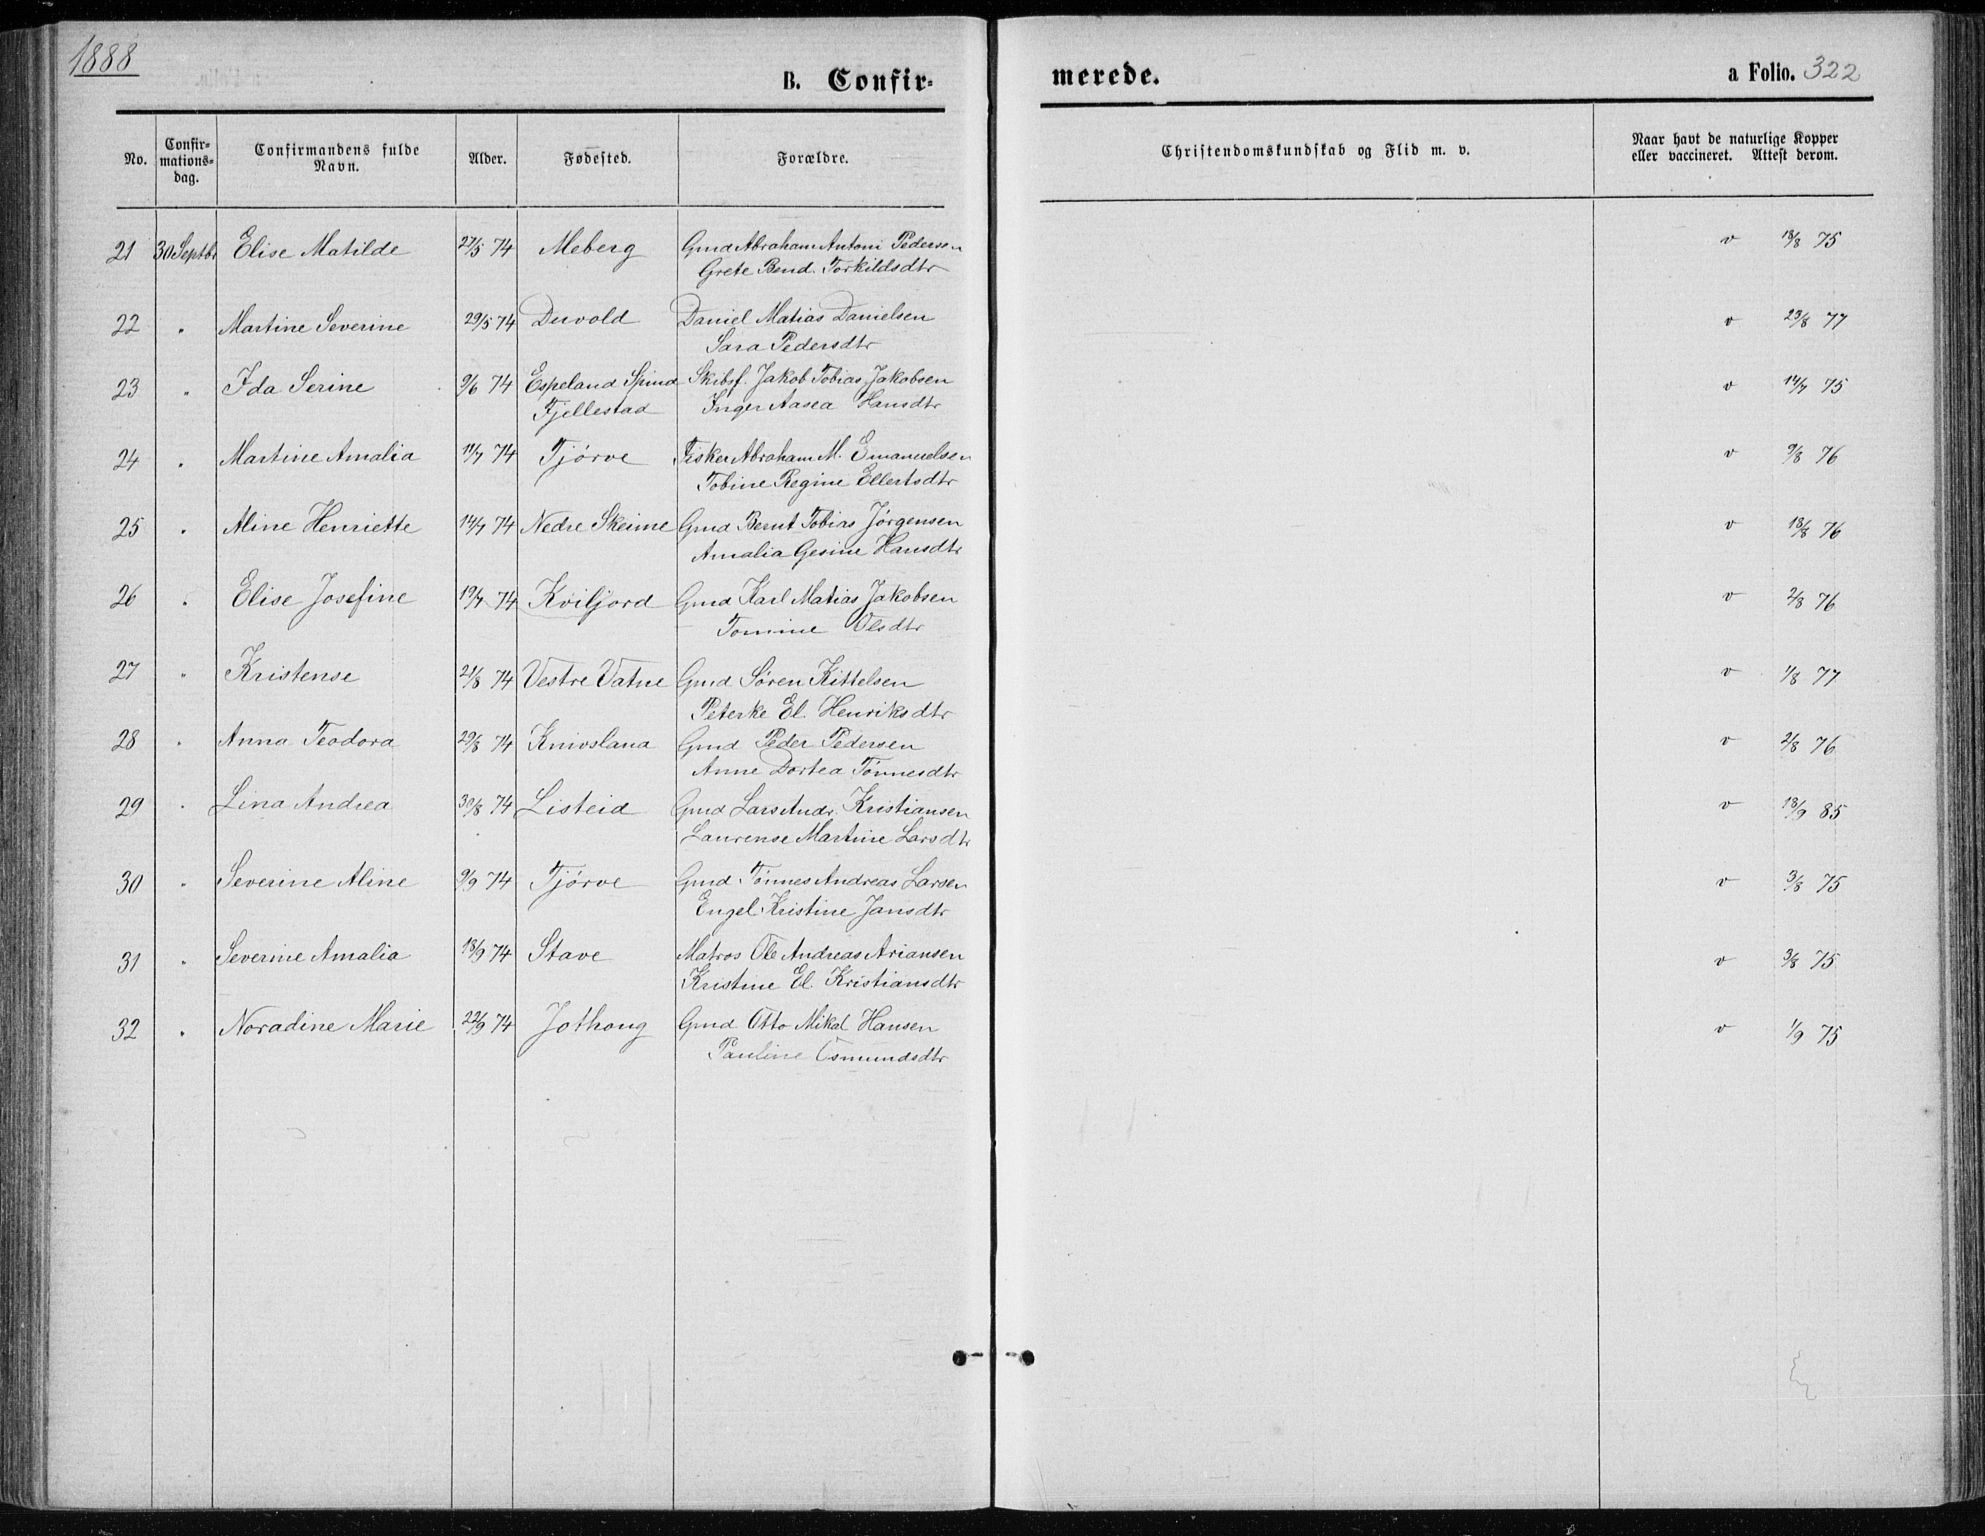 1888
B. Confir-
merede.
a Folio. 322
No.
Confir-
mations-
dag.
Confirmandens fulde
Navn.
Alder.
Fødested.
Forældre.
Christendomskundskab og Flid m. v.
Naar havt de naturlige Kopper
eller vaccineret. Attest derom.
21 30 Septbr Elise Matilde 27/5 74 Meberg Gmd Abraham Antoni Pedersen v 18/8 75
Grete Bend. Torkildsdtr
22 " Martine Severine 29/5 74 Duvold Daniel Matias Danielsen v 23/8 77
Sara Pedersdtr
23 " Ida Serine 9/6 74 Espeland Spind Skibsf. Jakob Tobias Jakobsen v 14/7 75
Fjellestad Inger Aasea Hansdtr
24 " Martine Amalia 11/7 74 Tjørve Fisker Abraham M. Emanuelsen v 9/8 76
Tobine Regine Ellertsdtr
25 " Aline Henriette 14/7 74 Nedre Skeime Gmd Bernt Tobias Jørgensen v 18/8 76
Amalia Gesine Hansdtr
26 " Elise Josefine 19/7 74 Kviljord Gmd Karl Matias Jakobsen v 2/8 76
Tomine Olsdtr
27 " Kristense 21/8 74 Vestre Vatne Gmd Søren Kittelsen v 1/8 77
Peterke El. Henriksdtr
28 " Anna Teodora 29/8 74 Knivsland Gmd Peder Pedersen v 2/8 76
Anne Dortea Tønnesdtr
29 " Lina Andrea 30/8 74 Listeid Gmd Lars Andr. Kristiansen v 18/9 85
Laurense Martine Larsdtr
30 " Severine Aline 9/9 74 Tjørve Gmd Tønnes Andreas Larsen v 3/8 75
Engel Kristine Jansdtr
31 " Severine Amalia 18/9 74 Stave Matros Ole Andreas Ariansen v 3/8 75
Kristine El. Kristiansdtr
32 " Noradine Marie 22/9 74 Jothoug Gmd Otto Mikal Hansen v 1/9 75
Pauline Osmundsdtr